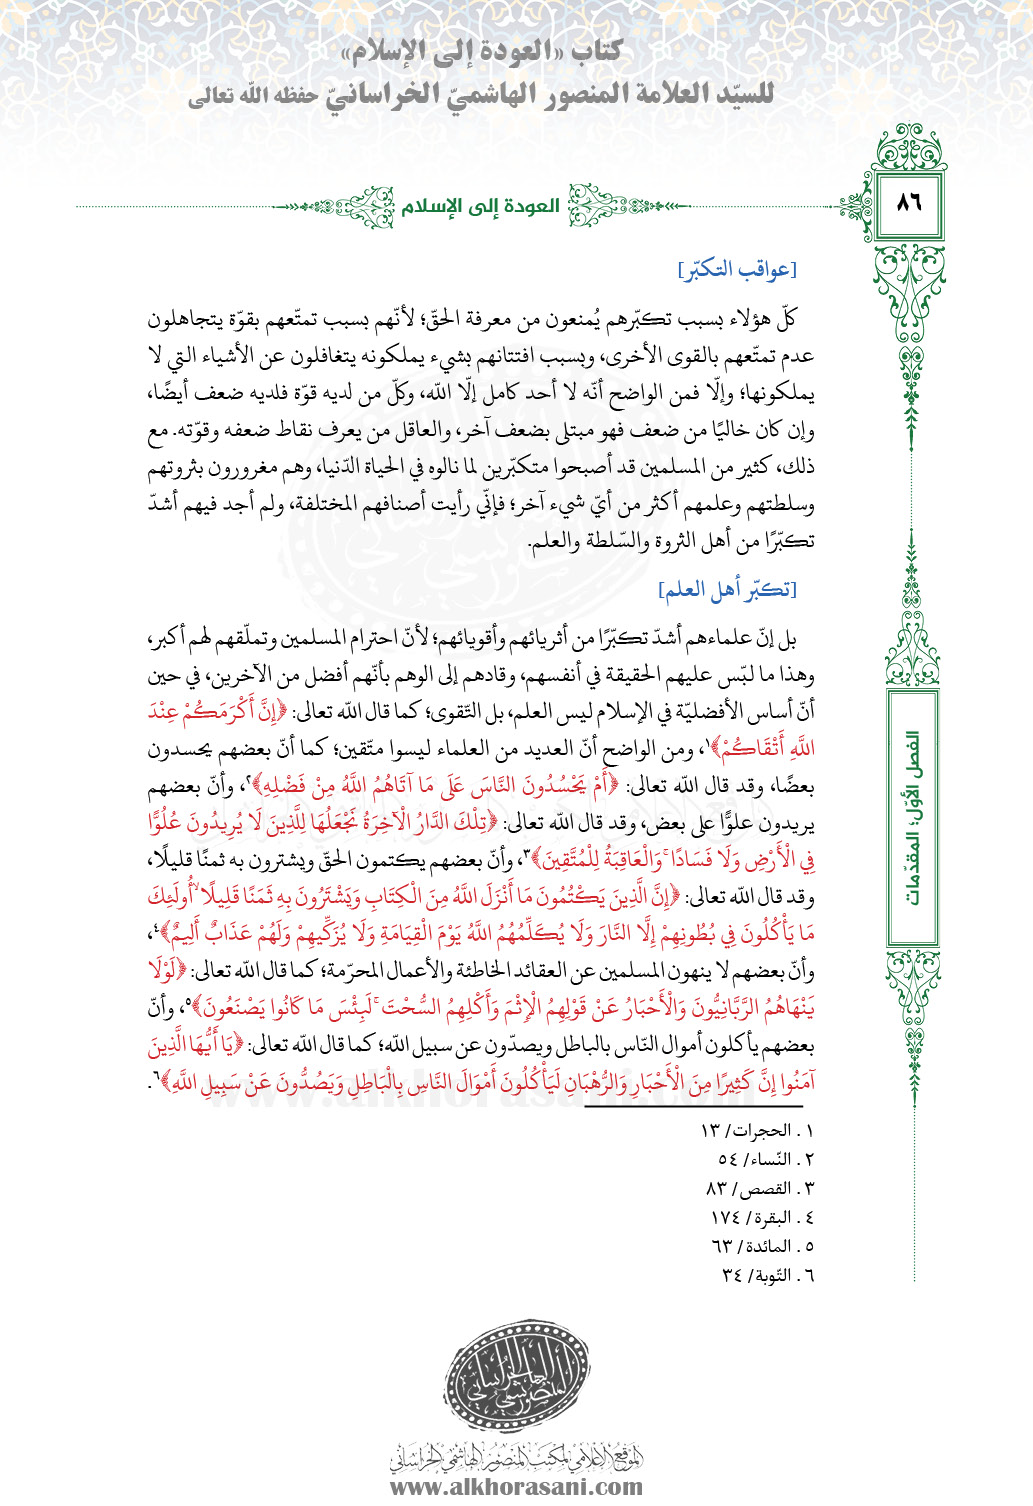 كتاب «العودة إلى الإسلام»
للسيّد العلامة المنصور الهاشميّ الخراسانيّ حفظه الله تعالى
٨٦
العودة إلى الإسلام
[عواقب التكبّر]
كلّ هؤلاء بسبب تكبّرهم يُمنعون من معرفة الحقّ؛ لأنّهم بسبب تمتّعهم بقوّة يتجاهلون
عدم تمتّعهم بالقوى الأخرى، وبسبب افتتانهم بشيء يملكونه يتغافلون عن الأشياء التي لا
يملكونها؛ وإلّا فمن الواضح أنّه لا أحد كامل إلّا الله، وكلّ من لديه قوّة فلديه ضعف أيضًا،
وإن كان خاليًا من ضعف فهو مبتلى بضعف آخر، والعاقل من يعرف نقاط ضعفه وقوّته. مع
ذلك، كثير من المسلمين قد أصبحوا متكبّرين لما نالوه في الحياة الدّنيا، وهم مغرورون بثروتهم
وسلطتهم وعلمهم أكثر من أيّ شيء آخر؛ فإنّي رأيت أصنافهم المختلفة، ولم أجد فيهم أشدّ
تكبّرًا من أهل الثروة والسّلطة والعلم.
[تكبّر أهل العلم]
بل إنّ علماءهم أشدّ تكبّرًا من أثريائهم وأقويائهم؛ لأنّ احترام المسلمين وتملّقهم لهم أكبر،
وهذا ما لبّس عليهم الحقيقة في أنفسهم، وقادهم إلى الوهم بأنّهم أفضل من الآخرين، في حين
أنّ أساس الأفضليّة في الإسلام ليس العلم، بل التّقوى؛ كما قال الله تعالى: ﴿إِنَّ أَكْرَمَكُمْ عِنْدَ
اللَّهِ أَتْقَاكُمْ﴾١، ومن الواضح أنّ العديد من العلماء ليسوا متّقين؛ كما أنّ بعضهم يحسدون
بعضًا، وقد قال الله تعالى: ﴿أَمْ يَحْسُدُونَ النَّاسَ عَلَى مَا آتَاهُمُ اللَّهُ مِنْ فَضْلِهِ﴾٢، وأنّ بعضهم
يريدون علوًّا على بعض، وقد قال الله تعالى: ﴿تِلْكَ الدَّارُ الْآخِرَةُ نَجْعَلُهَا لِلَّذِينَ لَا يُرِيدُونَ عُلُوًّا
فِي الْأَرْضِ وَلَا فَسَادًا ۚ وَالْعَاقِبَةُ لِلْمُتَّقِينَ﴾٣، وأنّ بعضهم يكتمون الحقّ ويشترون به ثمنًا قليلًا،
وقد قال الله تعالى: ﴿إِنَّ الَّذِينَ يَكْتُمُونَ مَا أَنْزَلَ اللَّهُ مِنَ الْكِتَابِ وَيَشْتَرُونَ بِهِ ثَمَنًا قَلِيلًا ۙ أُولَئِكَ
مَا يَأْكُلُونَ فِي بُطُونِهِمْ إِلَّا النَّارَ وَلَا يُكَلِّمُهُمُ اللَّهُ يَوْمَ الْقِيَامَةِ وَلَا يُزَكِّيهِمْ وَلَهُمْ عَذَابٌ أَلِيمٌ﴾٤،
وأنّ بعضهم لا ينهون المسلمين عن العقائد الخاطئة والأعمال المحرّمة؛ كما قال الله تعالى: ﴿لَوْلَا
يَنْهَاهُمُ الرَّبَّانِيُّونَ وَالْأَحْبَارُ عَنْ قَوْلِهِمُ الْإِثْمَ وَأَكْلِهِمُ السُّحْتَ ۚ لَبِئْسَ مَا كَانُوا يَصْنَعُونَ﴾٥، وأنّ
بعضهم يأكلون أموال النّاس بالباطل ويصدّون عن سبيل الله؛ كما قال الله تعالى: ﴿يَا أَيُّهَا الَّذِينَ
آمَنُوا إِنَّ كَثِيرًا مِنَ الْأَحْبَارِ وَالرُّهْبَانِ لَيَأْكُلُونَ أَمْوَالَ النَّاسِ بِالْبَاطِلِ وَيَصُدُّونَ عَنْ سَبِيلِ اللَّهِ﴾٦.
١ . الحجرات/ ١٣
٢ . النّساء/ ٥٤
٣ . القصص/ ٨٣
٤ . البقرة/ ١٧٤
٥ . المائدة/ ٦٣
٦ . التّوبة/ ٣٤
الفصل الأوّل؛ المقدّمات
www.alkhorasani.com
المنصور الهاشمي الخراساني
الموقع الإعلامي لمكتب المنصور الهاشمي الخراساني
www.alkhorasani.com